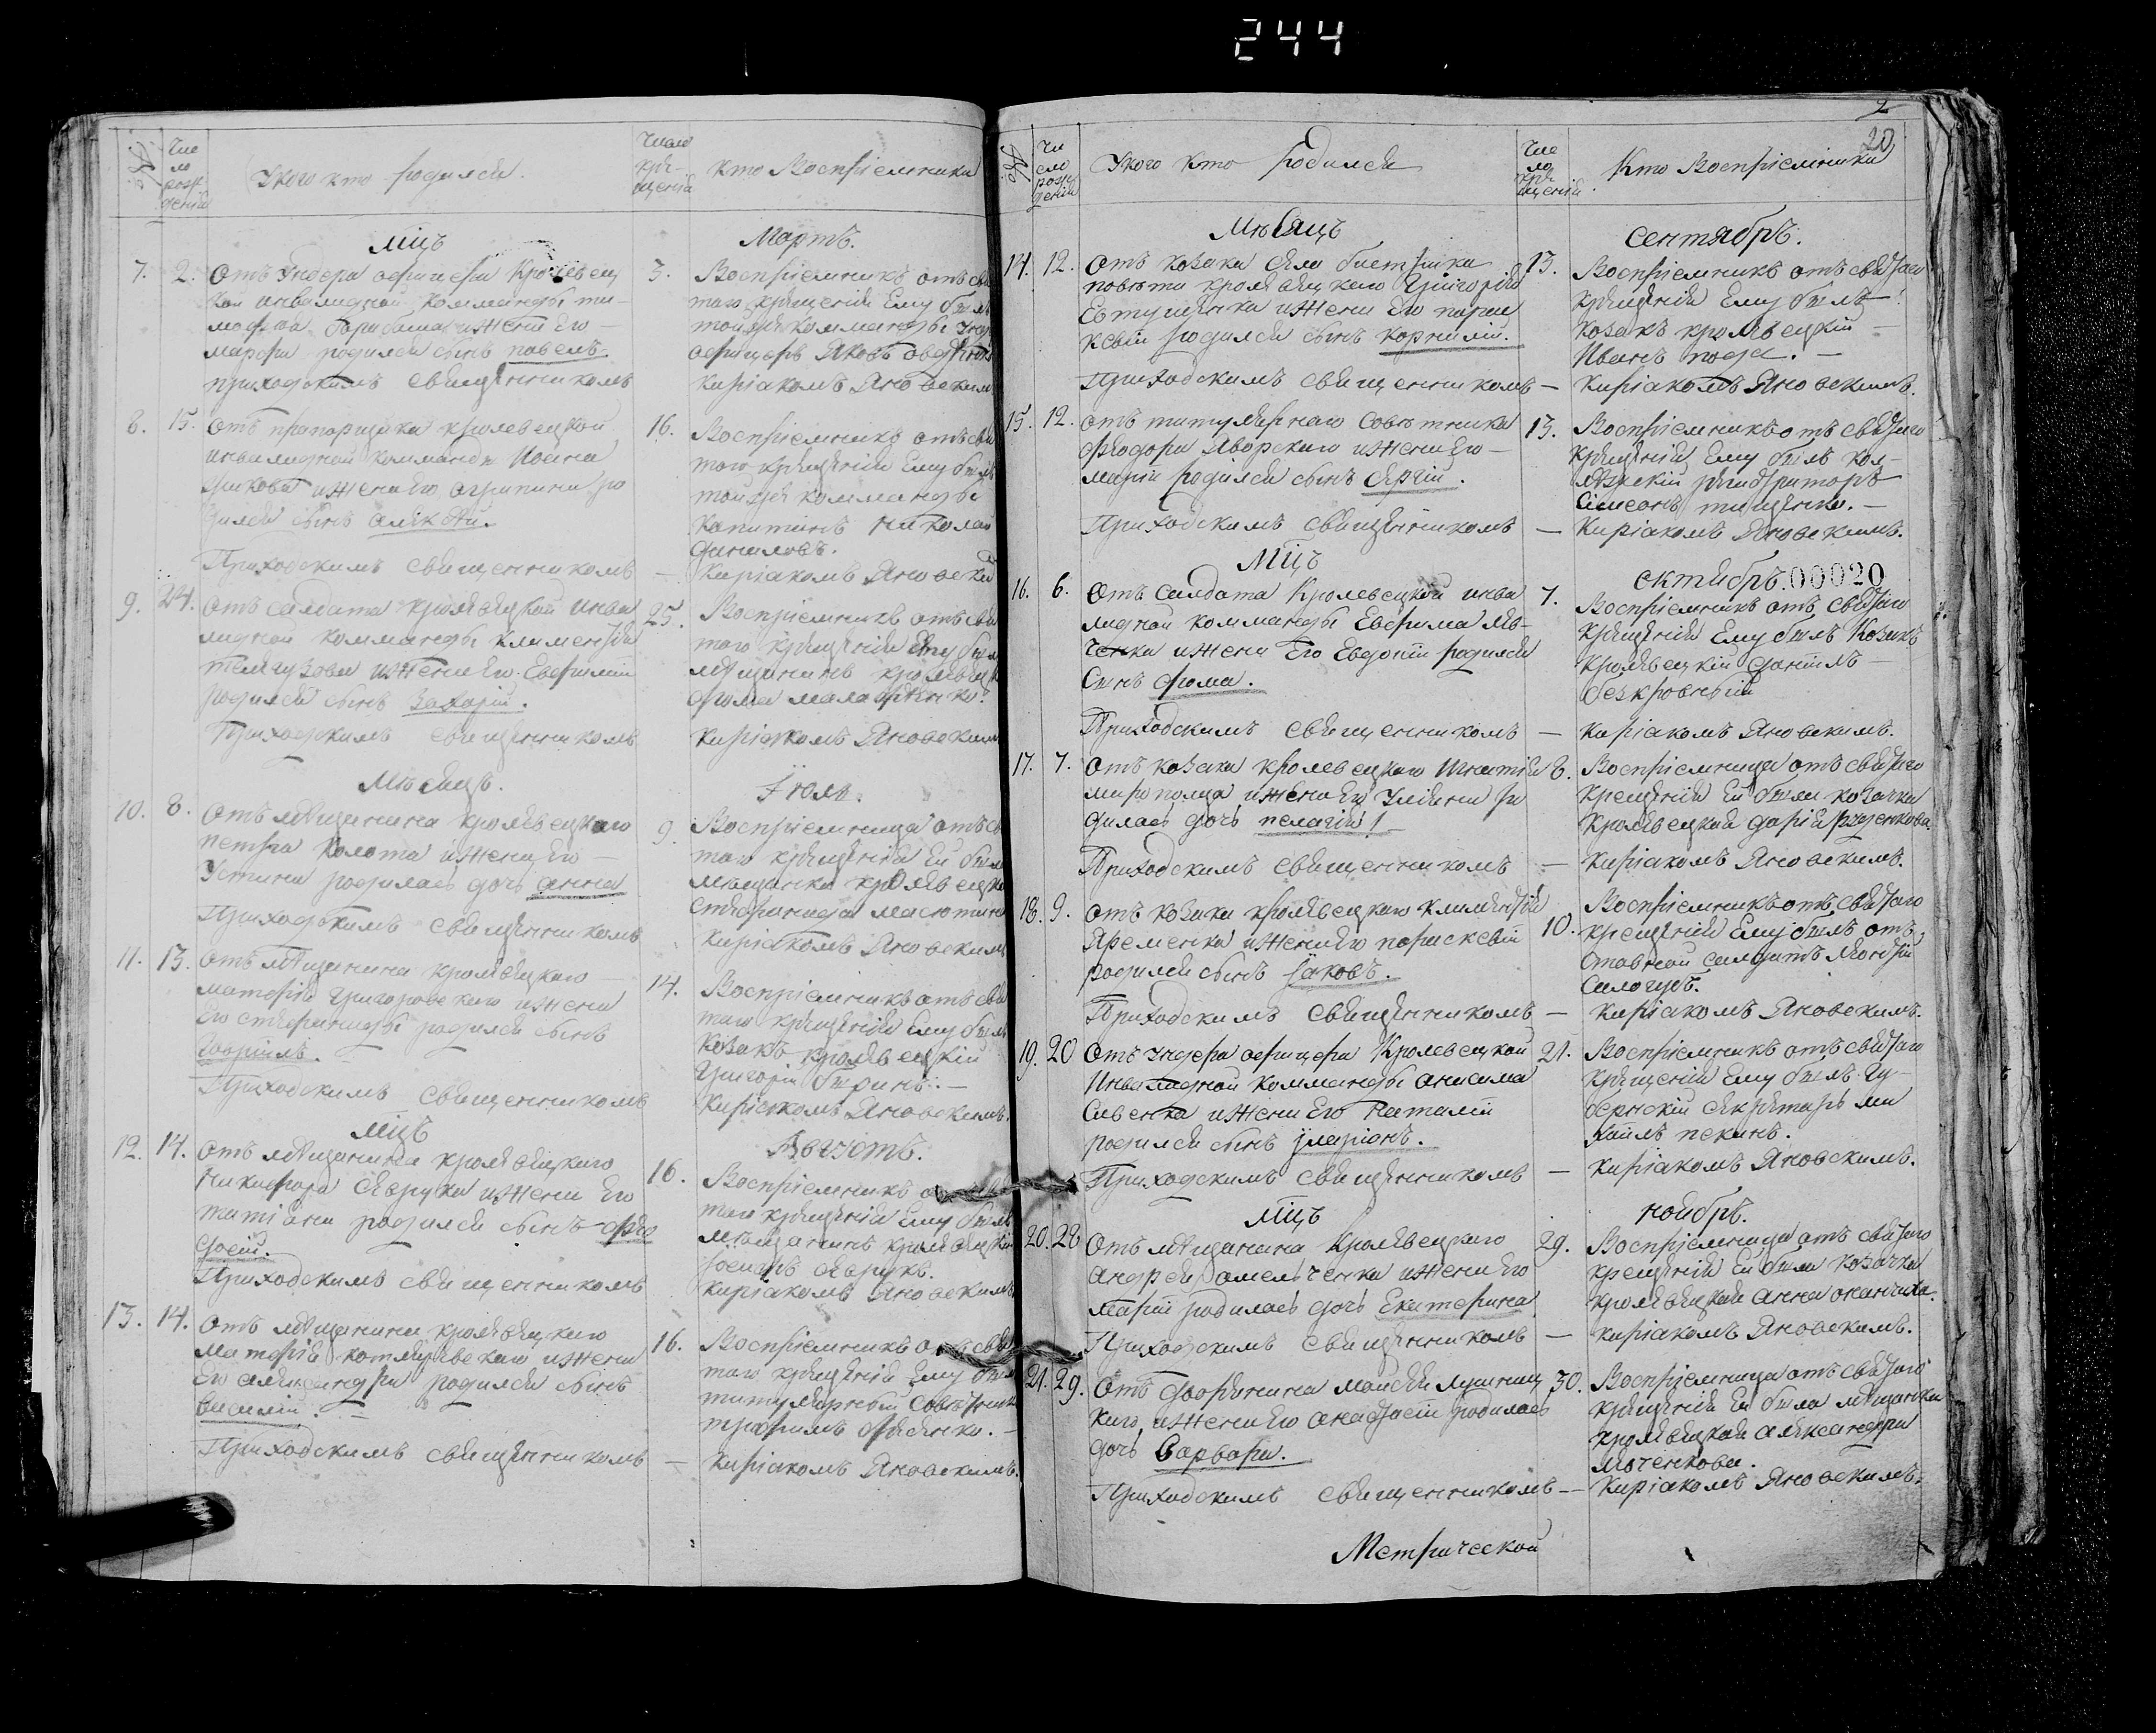 244
№
Чис
ло
рож
дений
У кого кто родился.
Число
кре-
щений
Кто Восприемники
мцъ
Мартъ.
7. 2. Отъ Ундера офицера Кролевец
кой инвалидной комманды ти-
мофея и жены Его
марфы родился сынъ павелъ
приходскимъ священникомъ
3. Восприемникъ отъ свя
таго крещения Ему былъ
тойже комманды Унд
офицеръ Яковъ
Кириакомъ Яновским
8. 15. Отъ прапорщика кролевецкой
инвалидной комманды Ивана
и жены Его агрипины ро
дился сынъ алексѣй.
Приходскимъ священникомъ
16. Восприемникъ отъ свя
таго крещения Ему былъ
тойже комманды
Капитанъ Николай
Даниловъ.
— Кириакомъ Яновский
9. 24. Отъ салдата кролевецкой инва
лидной комманды Климентия
и жены Его Евфимии
родился сынъ Захарий.
Приходскимъ священникомъ
25. Восприемникъ отъ свя
таго крещения Ему был
мѣщанинъ кролевец
фома
Кириакомъ Яновским
Мѣсяцъ.
Июль.
10. 8. Отъ мѣщанина кролевецкаго
петра Колота и жены Его
Устины родилась дочь анна
Приходскимъ священникомъ
9. Восприемница отъ св
таго крещения Ей была
мѣщанка кролевецка
стефанида
Кириакомъ Яновским
11. 13. Отъ мѣщанина кролевецкаго
матфия Григоровскаго и жены
Его стефаниды родился сынъ
Гавриилъ.
Приходскимъ священникомъ
14. Восприемникъ отъ свя
таго крещения Ему былъ
козакъ кролевецкий
Григорий
Кириакомъ Яновскимъ.
мцъ
Августъ.
12. 14. Отъ мѣщанина кролевецкаго
Никифора Севрука и жены Его
татианы родился сынъ фео
досий.
Приходскимъ священникомъ
16. Восприемникъ о
таго крещения Ему былъ
мѣщанинъ кролевецкий
Севрукъ.
Кириакомъ Яновскимъ
13. 14. Отъ мѣщанина кролевецкаго
матфия котляревскаго и жены
Его александры родился сынъ
Василий.
Приходскимъ священникомъ
16. Восприемникъ отъ свя
таго крещения Ему был
титулярный Совѣтник
трофимъ
— Кириакомъ Яновскимъ.
2
20
№
Чи
сло
рож
дений
У кого кто родился
Чис
ло
кре
щений
Кто Восприемники
Мѣсяцъ
сентябръ.
14. 12. Отъ козака села быстрика
повѣта кролевецкаго Григория
Евтушенка и жены Его парас
кевии родился сынъ корнилий.
Приходскимъ священникомъ
13. Восприемникъ отъ святаго
крещения Ему былъ
козакъ кролевецкий
Иванъ
— Кириакомъ Яновскимъ.
15. 12. Отъ титулярнаго совѣтника
Феодора Яворскаго и жены Его
марии родился сынъ Сергий.
Приходскимъ священникомъ
13. Восприемникъ отъ святаго
крещения Ему былъ кол-
лежский регистраторъ
Симеонъ тищенко.
— Кириакомъ Яновскимъ.
мцъ
октябръ. 00020
16. 6. Отъ салдата Кролевецкой инва
лидной комманды Евфима Лев-
ченка и жены Его Евдокии родился
Сынъ фома.
Приходскимъ священникомъ
7. Восприемникъ отъ святаго
крещения Ему былъ Козакъ
кролевецкий даниилъ
безкровный
— Кириакомъ Яновскимъ.
17. 7. Отъ козака кролевецкаго Игнатия
миропольца и жены Его Улияны ро
дилась дочь пелагия
Приходскимъ священникомъ
8. Восприемница отъ святаго
крещения Ей была козачка
кролевецкая дария
— Кириакомъ Яновскимъ.
18. 9. Отъ козака кролевецкаго Климентия
Яременка и жены Его параскевии
родился сынъ Iаковъ.
Приходскимъ священникомъ
10. Восприемникъ отъ святаго
крещения Ему былъ от-
ставной салдатъ
Салогубъ.
— Кириакомъ Яновскимъ.
19. 20 Отъ Ундера офицера Кролевецкой
Инвалидной комманды анисима
Савенка и жены Его Наталии
родился сынъ Iларионъ.
Приходскимъ священникомъ
21. Восприемникъ отъ святаго
крещения Ему былъ гу-
бернский секретарь ми
хаилъ пекинъ.
— Кириакомъ Яновскимъ.
мцъ
ноябръ.
20. 28 Отъ мѣщанина Кролевецкаго
андрея омельченка и жены Его
марии родилась дочь Екатерина
Приходскимъ священникомъ
29. Восприемница отъ святаго
крещения Ей была козачка
кролевецкая анна
— Кириакомъ Яновскимъ.
21. 29. Отъ дворянина моисея
каго и жены Его анастасии родилась
дочь Варвара.
Приходскимъ священникомъ
30. Восприемница отъ святаго
крещения Ей была мѣщанка
кролевецкая александра
— Кириакомъ Яновскимъ.
Метрической